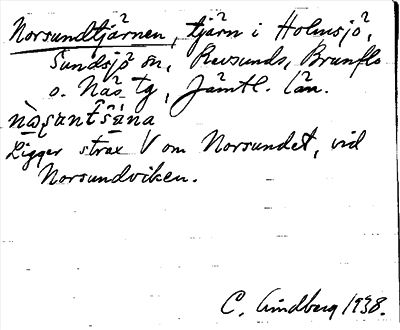 Norsundtjärnen, tjärn i Holmsjö,
Sundsjö sn, Revsunds, Brunflo
o. Näs tg, Jämtl. län.
Ligger strax V om Norsundet, vid
Norsundviken.
C. Lindberg 1938.